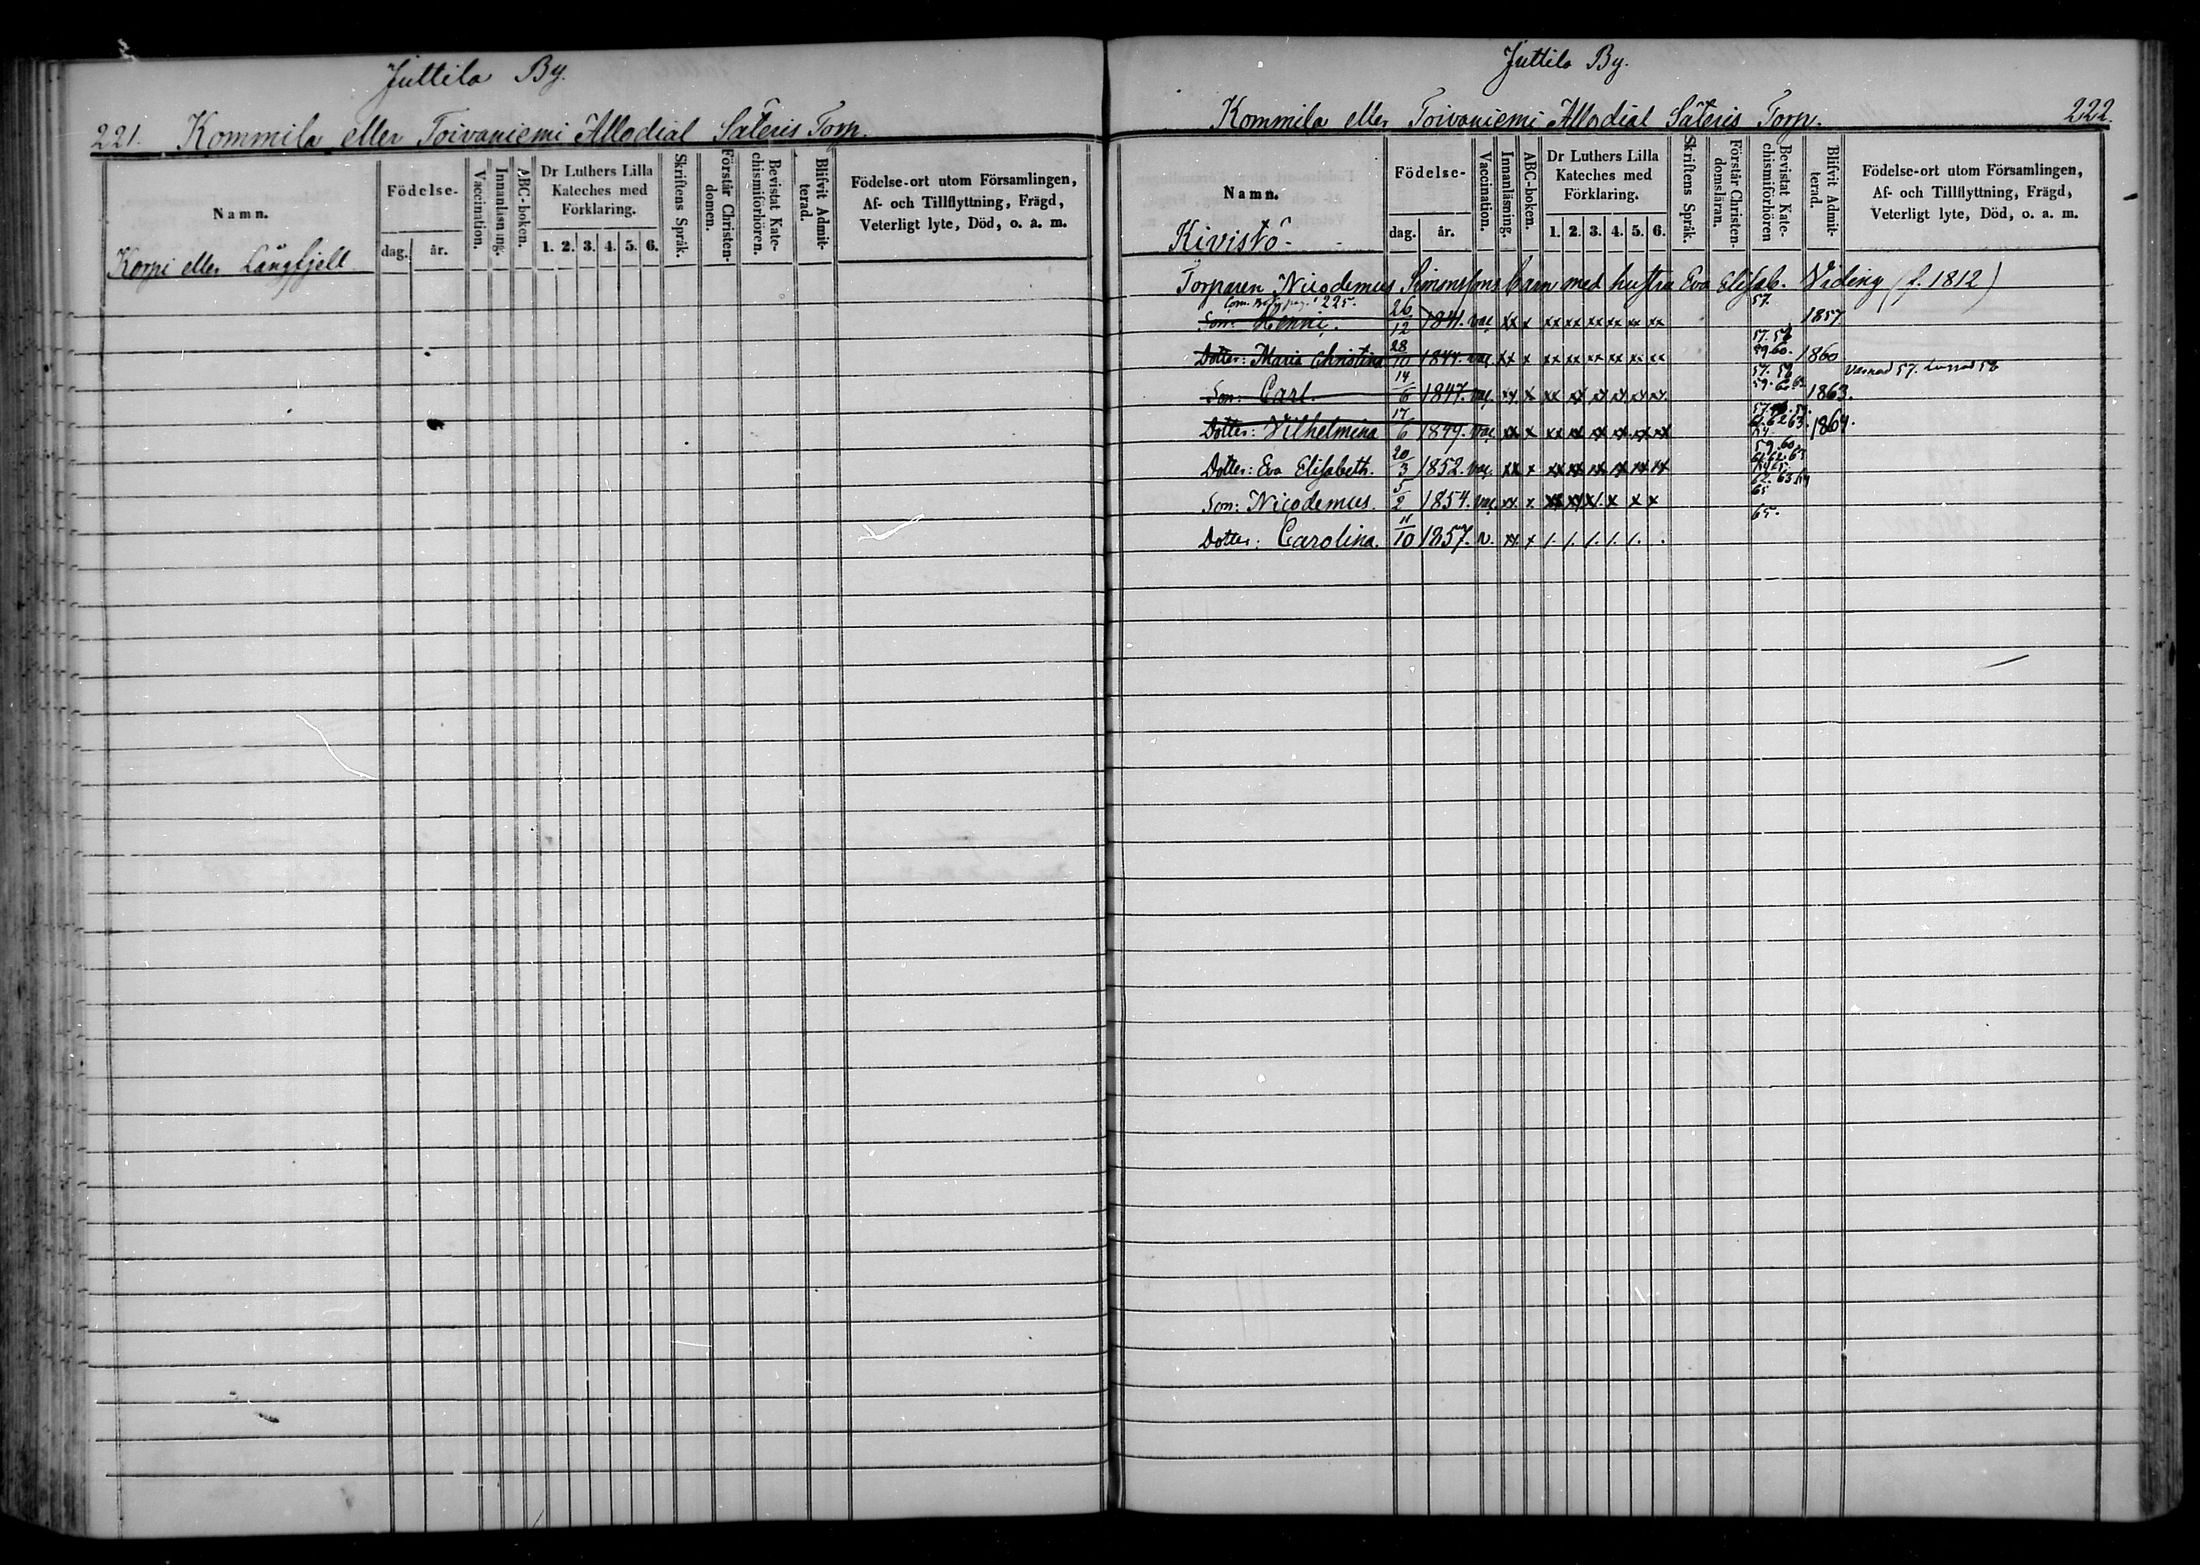 Juttila By.
221. Kommila eller Toivaniemi Allodial Säteris Torp.
Namn.
Födelse-
dag. år.
Vaccination.
Innanläsning.
ABC-boken.
Dr Luthers Lilla Kateches med Förklaring.
1. 2. 3. 4. 5. 6.
Skriftens Språk.
Förstår Christen-domen.
Bevistat Kate-chismiförhören.
Blifvit Admit-terad.
Födelse-ort utom Församlingen, Af- och Tillflyttning, Frägd, Veterligt lyte, Död, o. a. m.
Korpi eller Långfjell
Juttila By.
Kommila eller Toivaniemi Allodial Säteris Torp. 222.
Namn.
Födelse-
dag. år.
Vaccination.
Innanläsning.
ABC-boken.
Dr Luthers Lilla Kateches med Förklaring.
1. 2. 3. 4. 5. 6.
Skriftens Språk.
Förstår Christen-domsläran.
Bevistat Kate-chismiförhören
Blifvit Admit-terad.
Födelse-ort utom Församlingen, Af- och Tillflyttning, Frägd, Veterligt lyte, Död, o. a. m.
Kivistö.
Torparen Nicodemus Simonssons barn med hustru Eva Elisab. Viding (f. 1812)
pag. 225.
Son: Henric. 26/12 1841. vac xx x xx xx xx xx xx xx 57. 1857
Dotter: Maria Christina 28 1844. vac xx x xx xx xx xx xx xx 57. 58 59 60. 1860
Son: Carl. 14/6 1847. vac xx x xx xx xx xx xx xx 57. 58 59. 1863.
Dotter: Vilhelmina 17/6 1849. vac xx x xx xx xx xx xx xx 63. 1864.
Dotter: Eva Elisabeth. 20/3 1852. vac xx x xx xx xx xx xx xx 59. 60.
Son: Nicodemus. 5/2 1854. vac xx x xx xx x x x x 62. 63 64 65
Dotter: Carolina. 11/10 1857. v. xx x /. /. /. /. /. . 65.